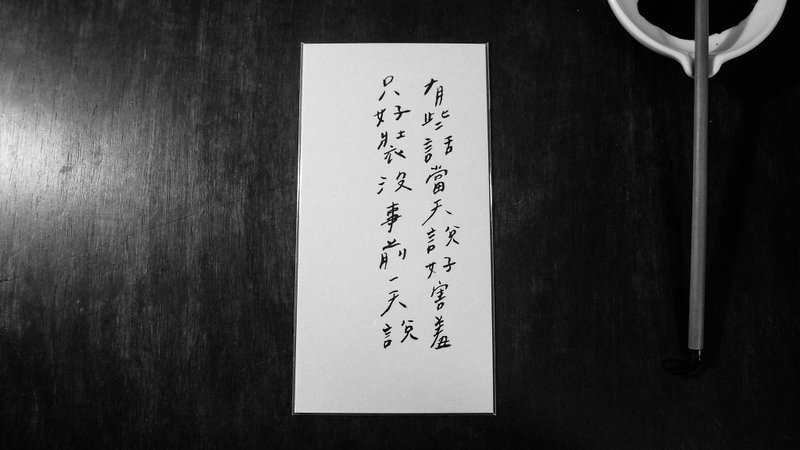 有些話當天說好害羞
只好裝沒事前一天說